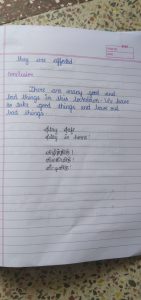 they are affected
conclusion
There are many good and
bad things in this lockdown. We have
to take good things and leave out
bad things.
Stay safe
Stay in home!
விழித்திரு!
விலகியிரு!
வீட்டிலிரு!